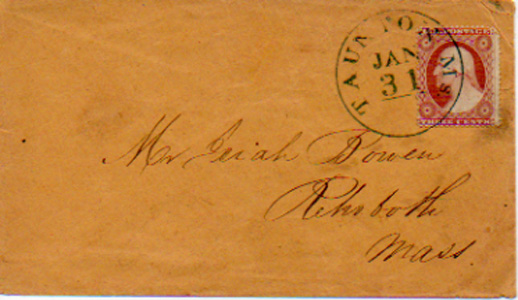 TAUNTON Ms
JAN
31
U.S. POSTAGE
THREE CENTS
Mr Isiah Bowen
Rehoboth
Mass.